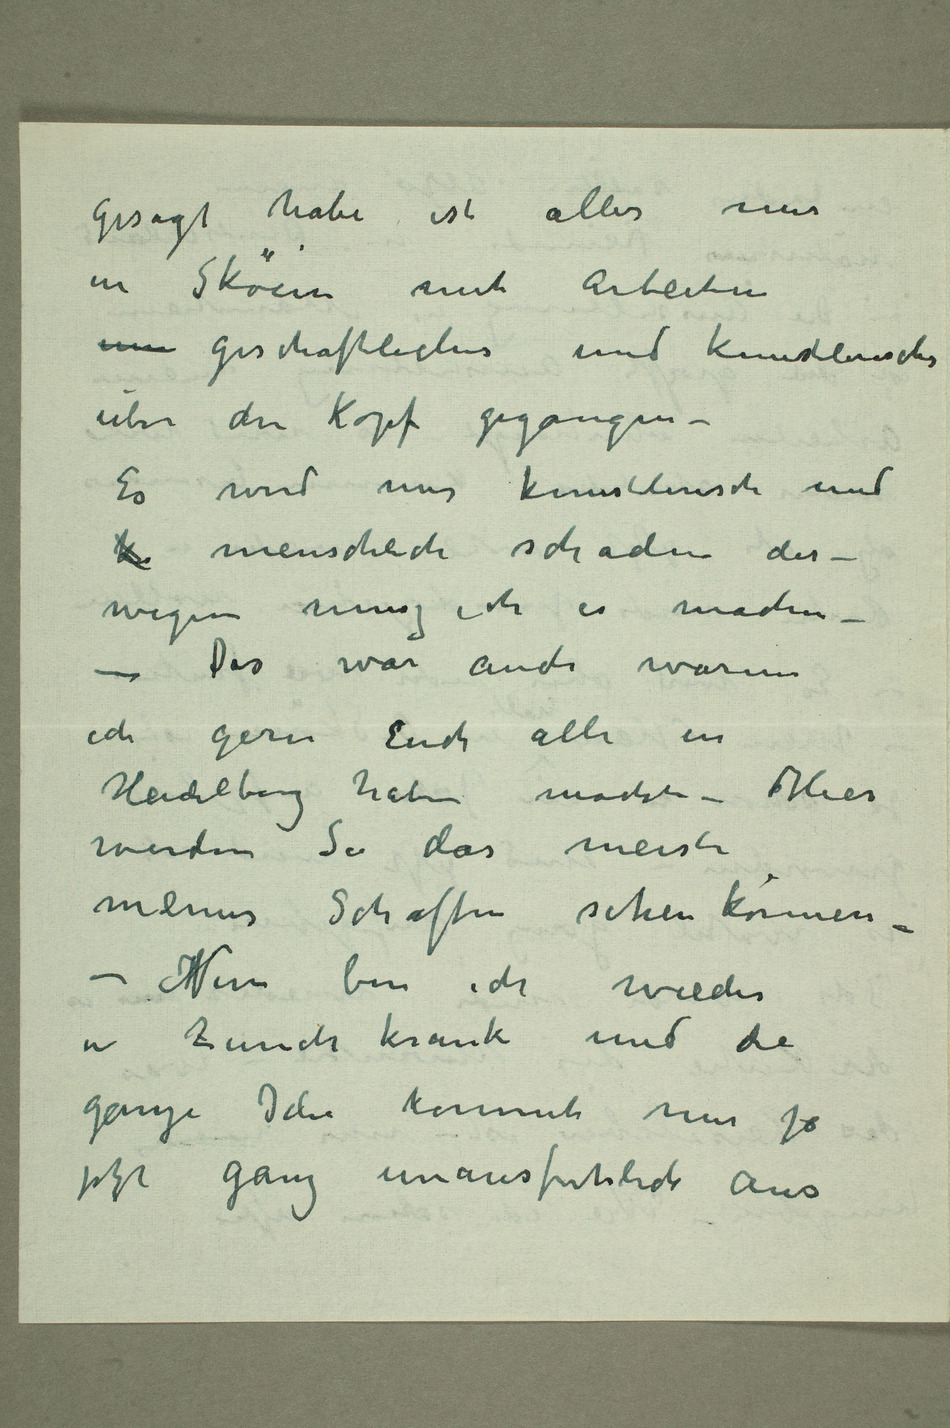 gesagt habe ist alles mir
in Sköien mit Arbeiten
geschäftliches und künstlerisches
über den Kopf gegangen –
Es wird mir künstlerisch und
menschlich schaden des–
wegen muss ich es machen –
– Das war auch warum
ich gern Euch alle in
Heidelberg haben möchte – Hier
werden Sie das meiste
meines Schaffen sehen können –
– Nun bin ich wieder
in Zürich krank und die
ganze Idee kommt mir ja
jetzt ganz unausfürhlich aus